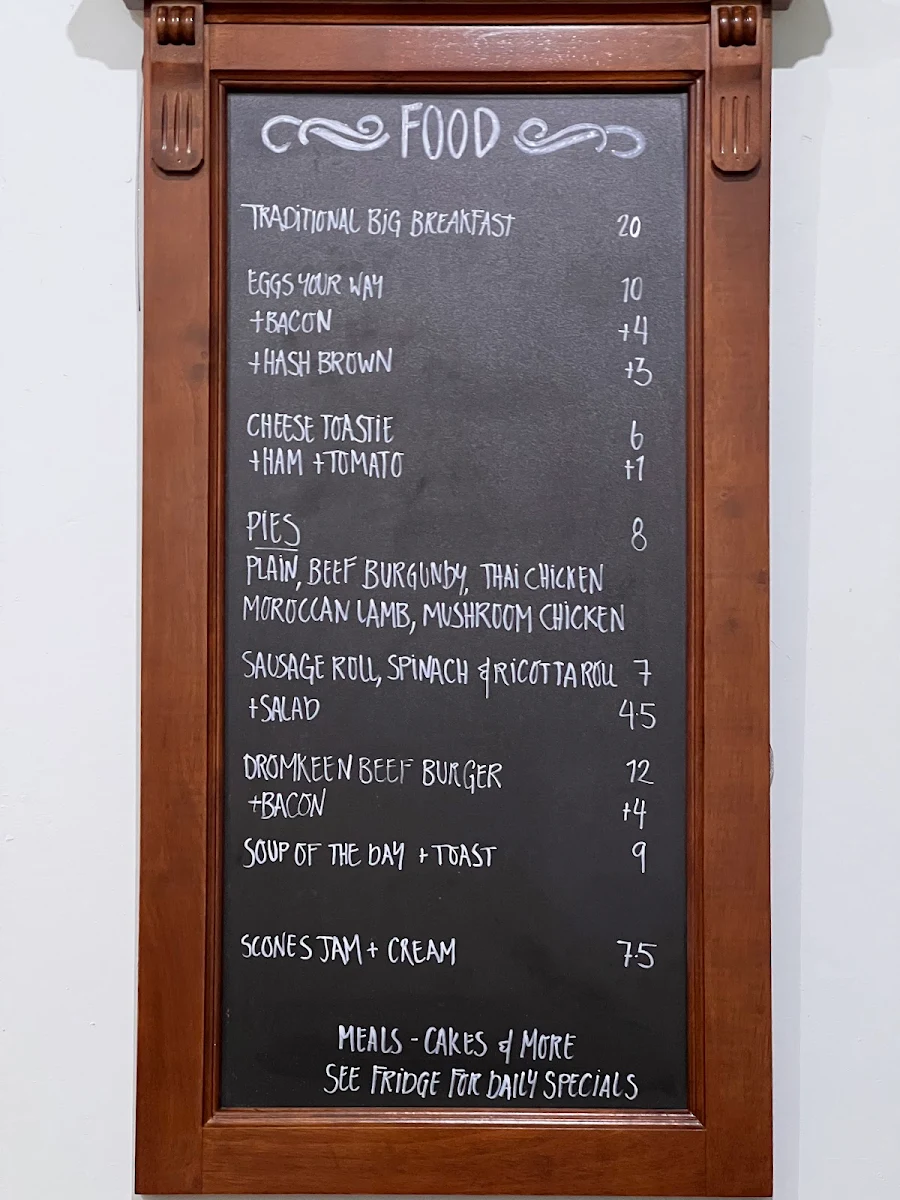 FOOD
TRADITIONAL BIG BREAKFAST 20
EGGS YOUR WAY 10
+BACON +4
+HASH BROWN +3
CHEESE TOASTIE 6
+HAM +TOMATO +1
PIES 8
PLAIN, BEEF BURGUNDY, THAI CHICKEN
MOROCCAN LAMB, MUSHROOM CHICKEN
SAUSAGE ROLL, SPINACH & RICOTTA ROLL 7
+SALAD 4.5
DROMKEEN BEEF BURGER 12
+BACON +4
SOUP OF THE DAY + TOAST 9
SCONES JAM + CREAM 7.5
MEALS - CAKES & MORE
SEE FRIDGE FOR DAILY SPECIALS